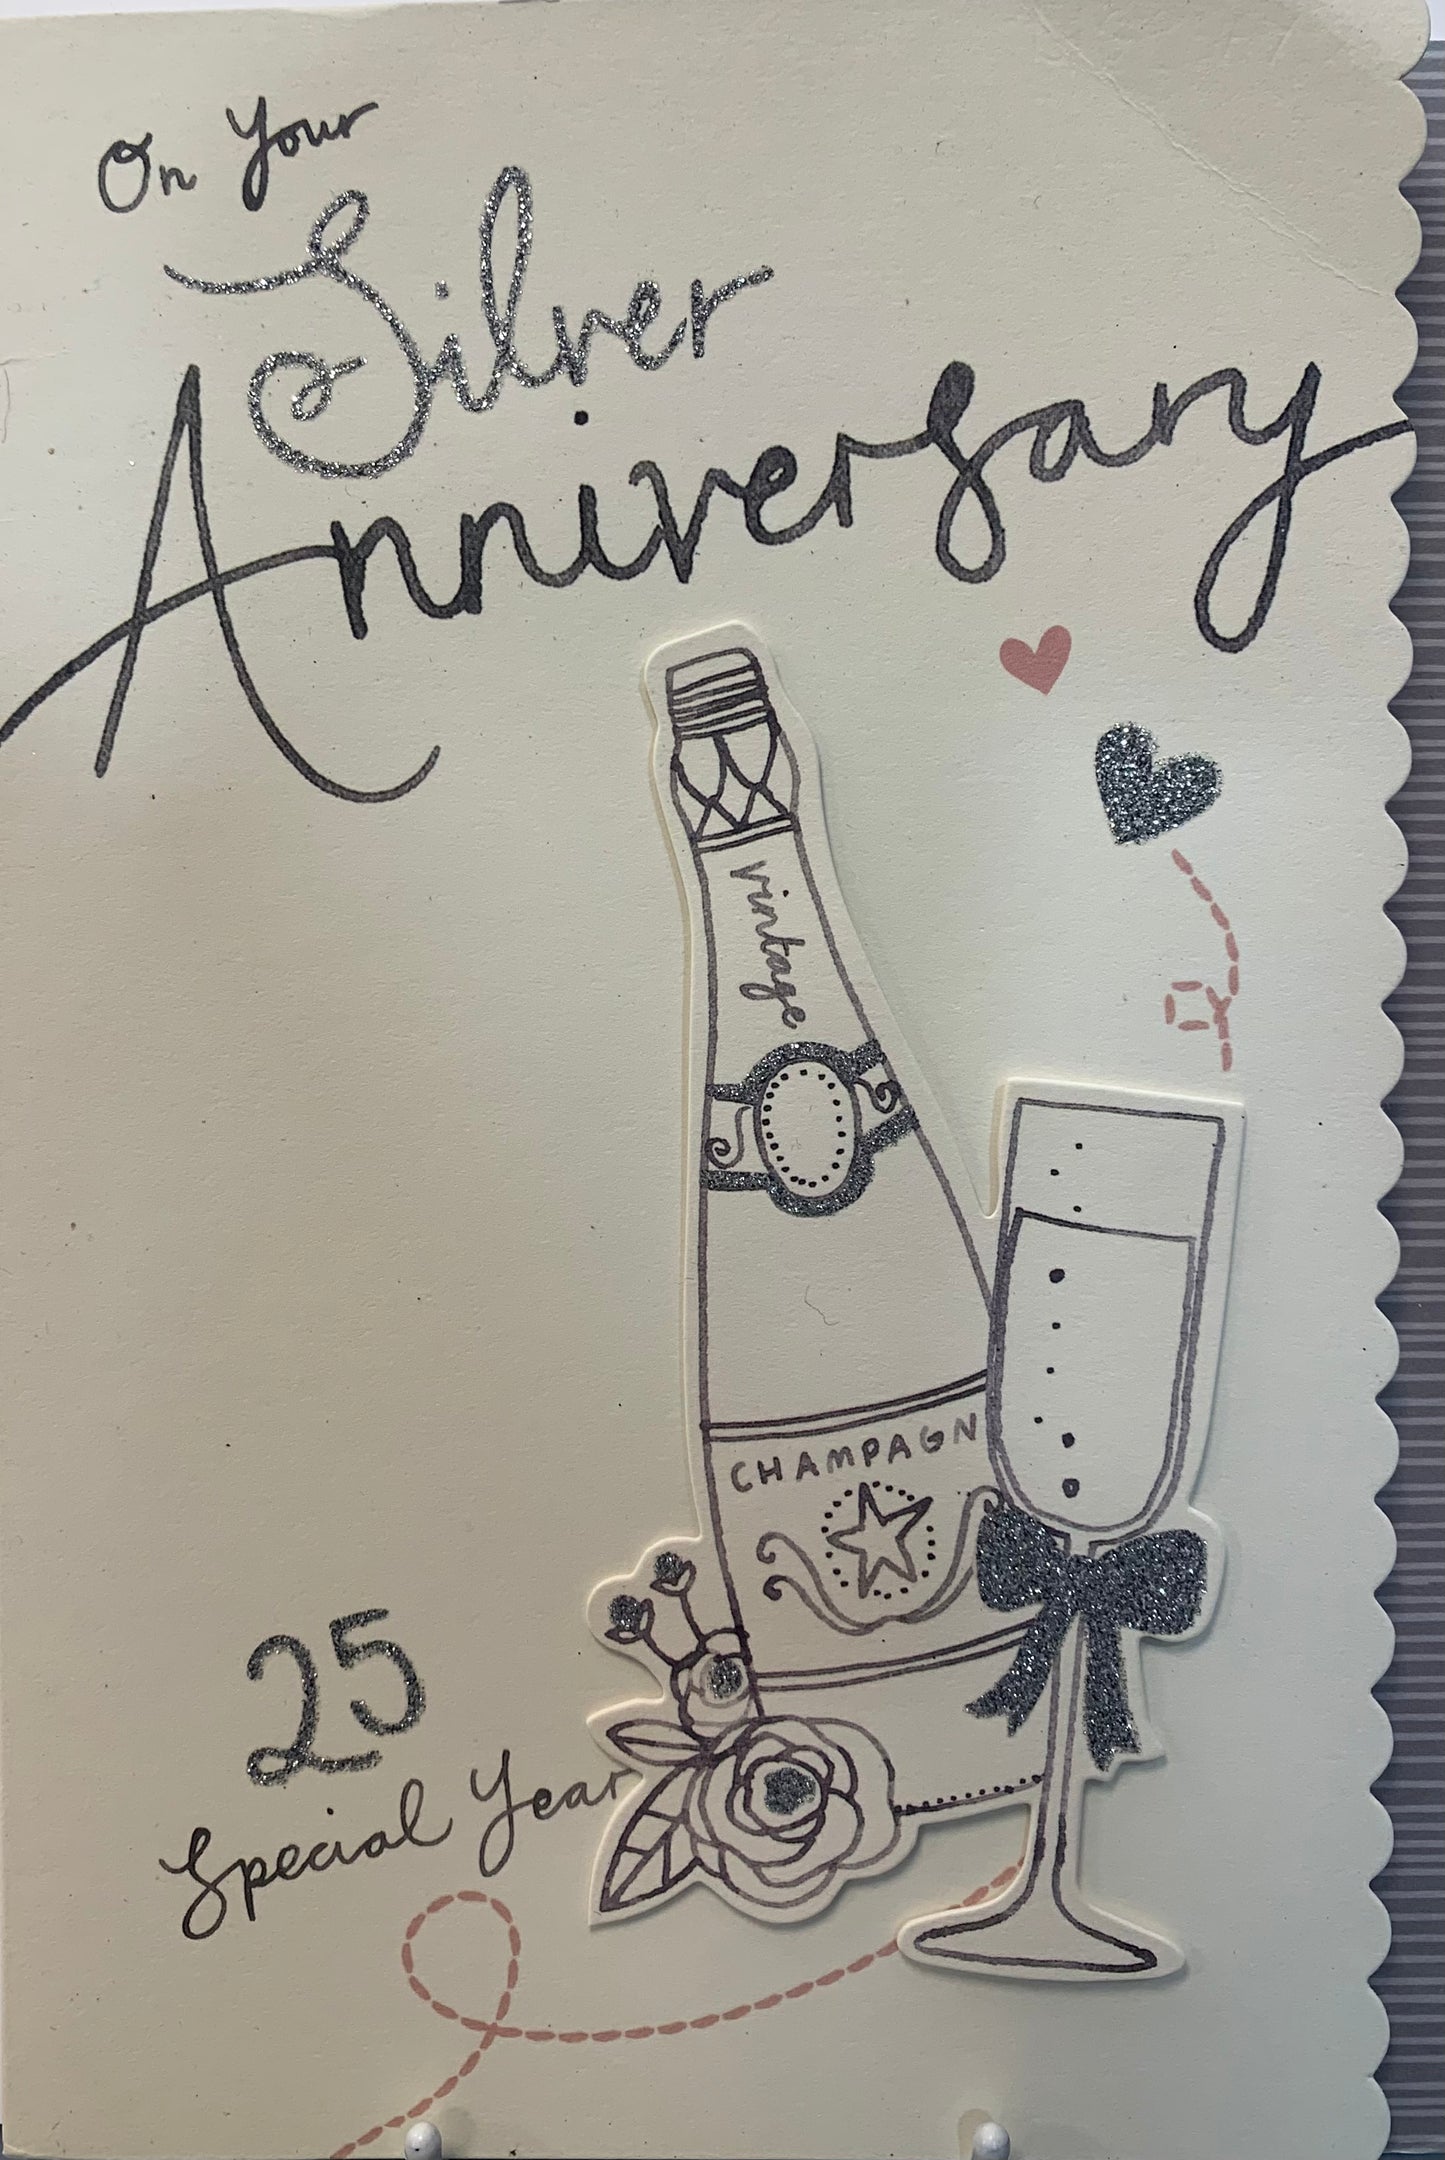 On Your
Silver
Anniversary
vintage
CHAMPAGN
25
Special Year